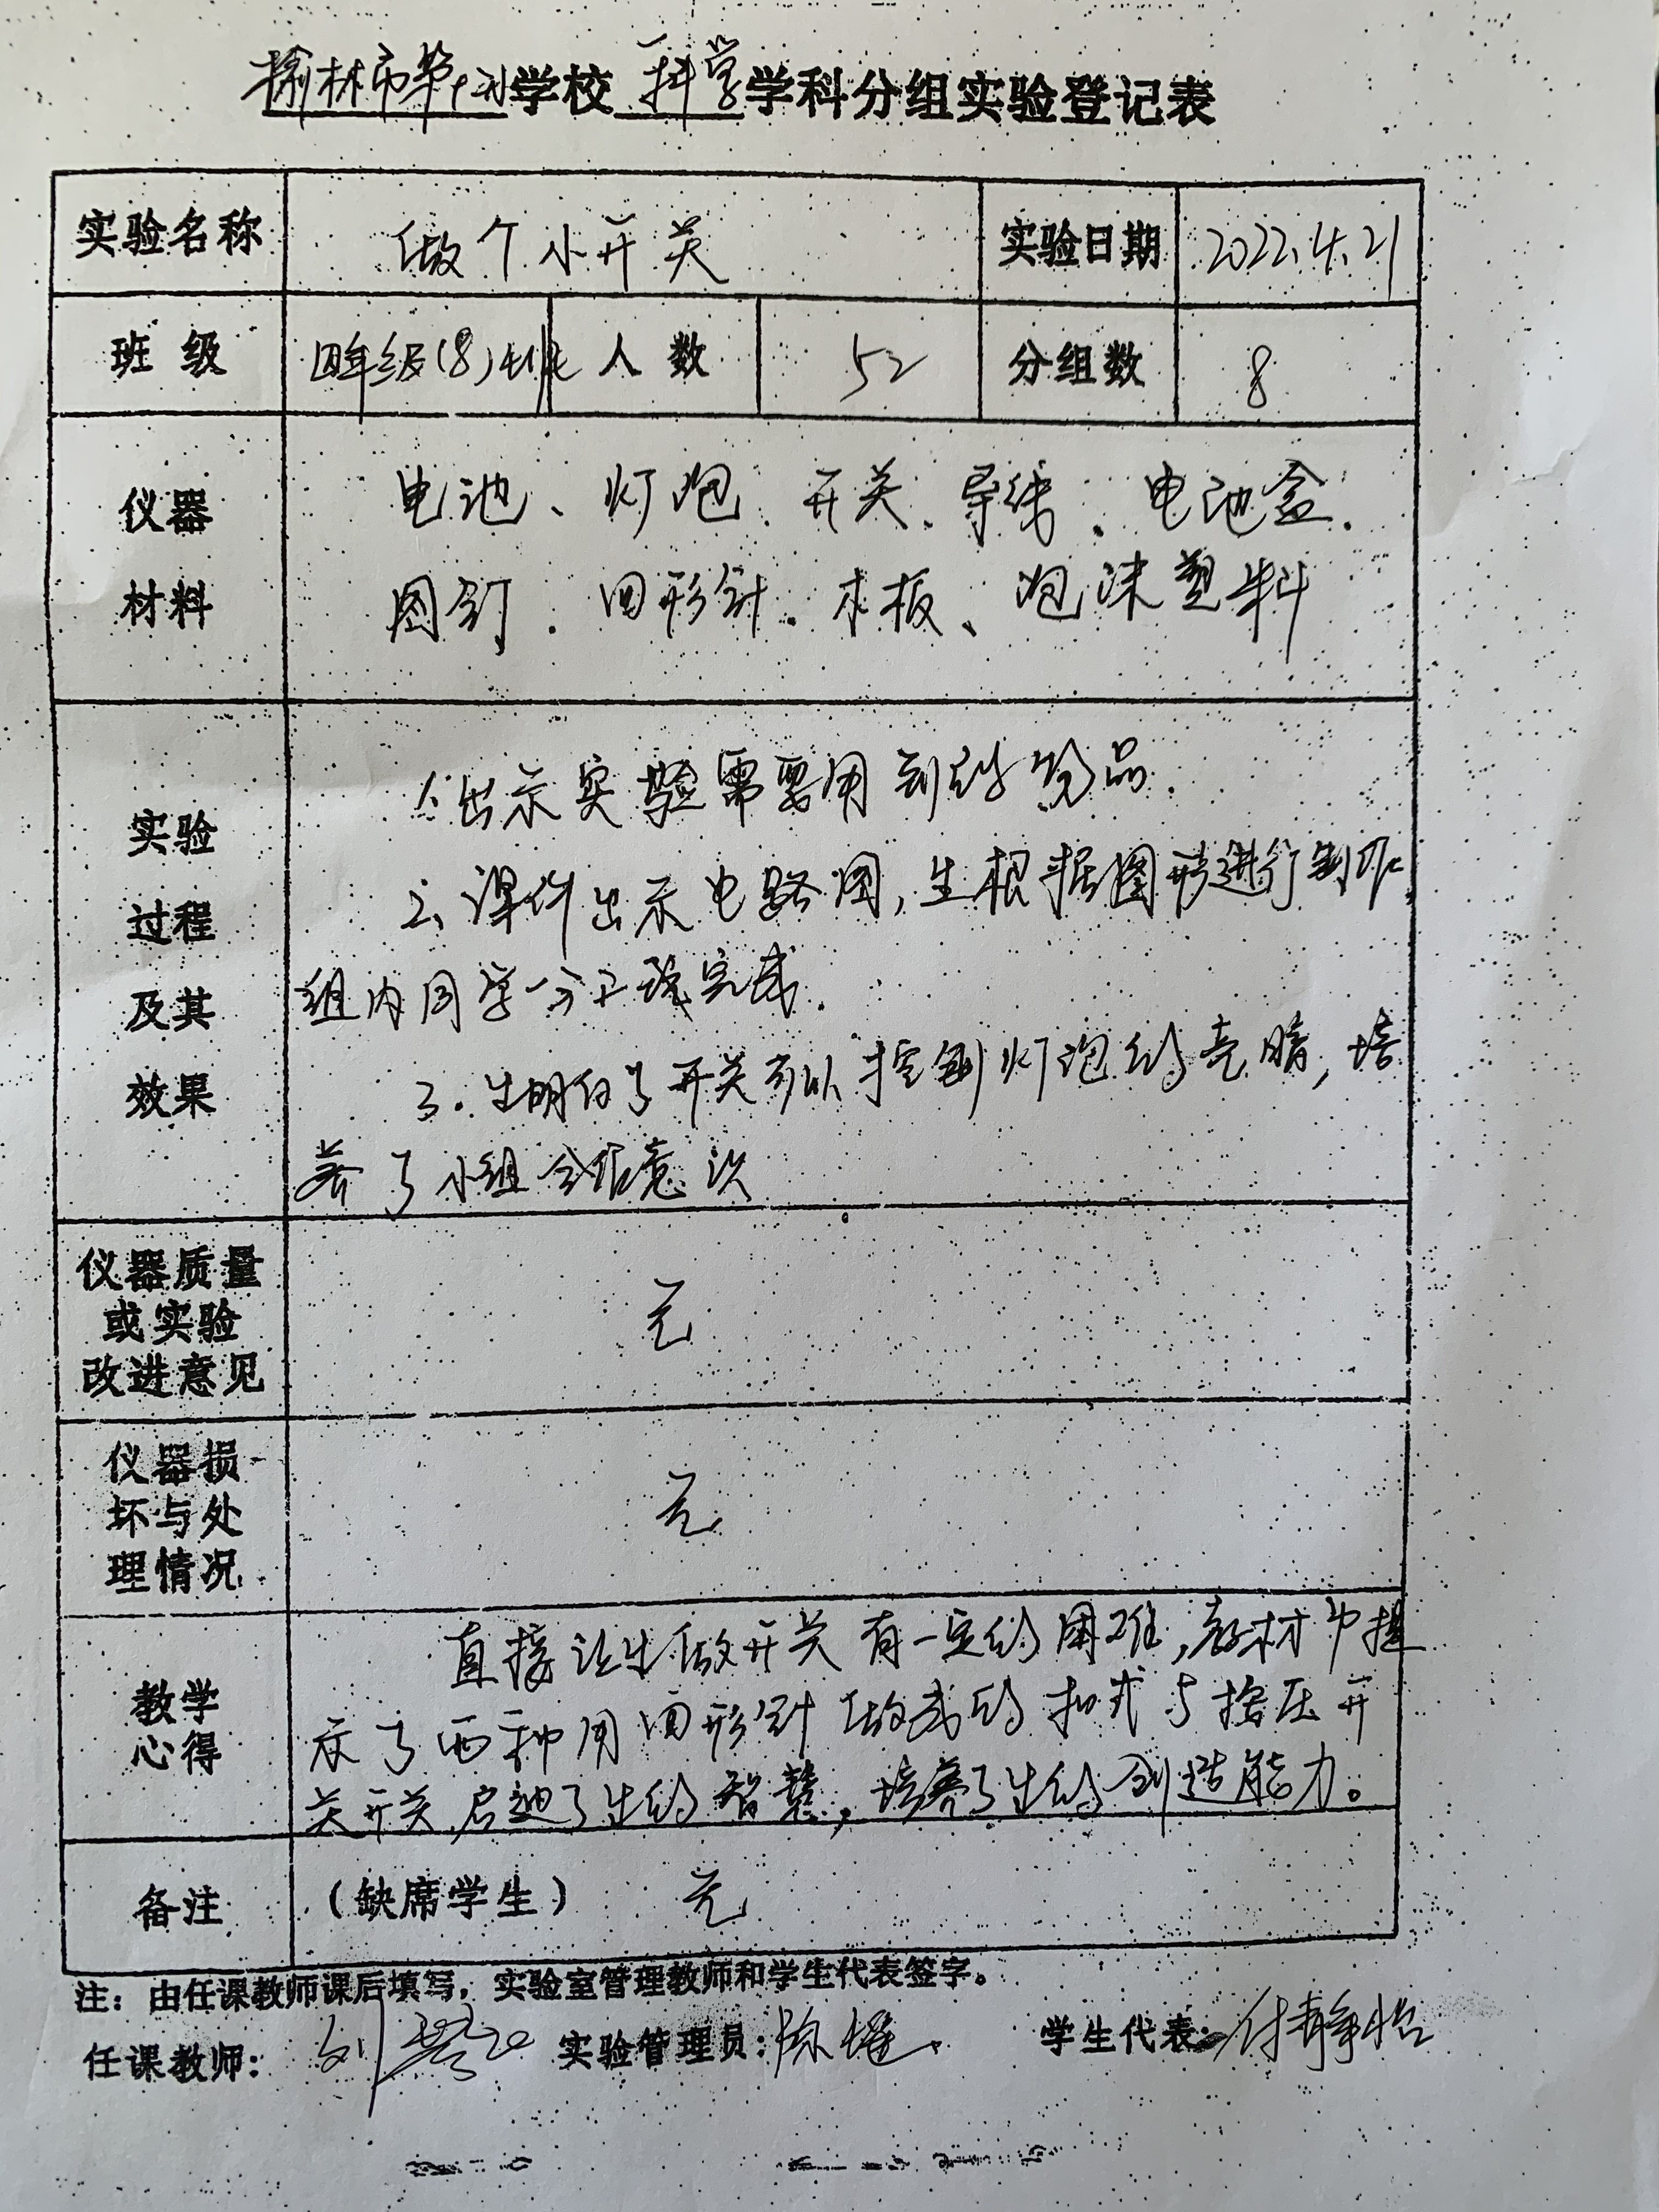 榆林市第 学校 科学 学科分组实验登记表
实验名称 做个小开关 实验日期 2022.4.21
班级 四年级(8)班 人数 52 分组数 8
仪器
材料
电池、灯泡、开关、导线、电池盒、
图钉、回形针、木板、泡沫塑料
实验
过程
及其
效果
1、出示实验需要用到的物品.
2、课件出示电路图,生根据图形进行制作,
组内同学分工完成.
3.生明白了开关可以控制灯泡的亮暗,培
养了小组合作意识
仪器质量
或实验
改进意见
无
仪器损
坏与处
理情况
无
教学
心得
直接让生做开关有一定的困难,教材中提
示了两种用回形针做成的 式与按压开
关开关,启迪了生的智慧,培养了生的创造能力。
备注 (缺席学生) 无
注:由任课教师课后填写,实验室管理教师和学生代表签字。
任课教师: 刘 实验管理员: 学生代表: 付静怡